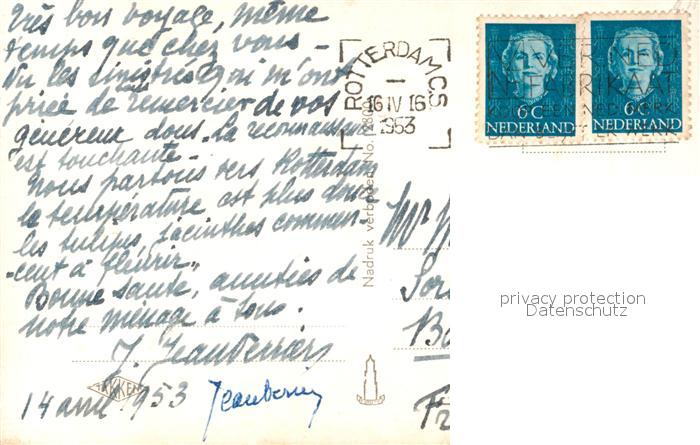 très bon voyage, même
temps que chez vous -
Vu les sinistrés qui m'ont
priée de remercier de vos
généreux dons. La reconnaissance
est touchante -
Nous partons vers Rotterdam
la température est plus douce
les tulipes, jacinthes commen-
-cent à fleurir.
Bonne santé, amitiés de
notre ménage à tous.
J. Jeanbernin
14 avril 1953
HAKKEN
Jeanbernin
ROTTERDAM C.S
16 IV 16
1953
Nadruk verboden No.
6C
NEDERLAND
6C
NEDERLAND
Mr
privacy protection
Datenschutz